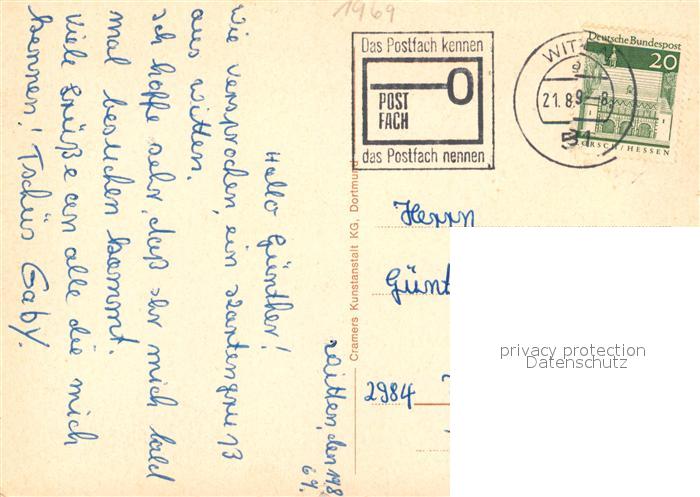 1969
Das Postfach kennen
POST
FACH
das Postfach nennen
WITTEN
21.8.9-8
51
Deutsche Bundespost
20
LORSCH/HESSEN
Witten, den 19.8
69.
Hallo Günther!
Wie versprochen, ein Kartengruß
aus Witten.
Ich hoffe sehr, daß ihr mich bald
mal besuchen kommt.
Viele Grüße an alle die mich
kennen! Tschüs Gaby.
Cramers Kunstanstalt KG, Dortmund
Herrn
Günt
2984
privacy protection
Datenschutz